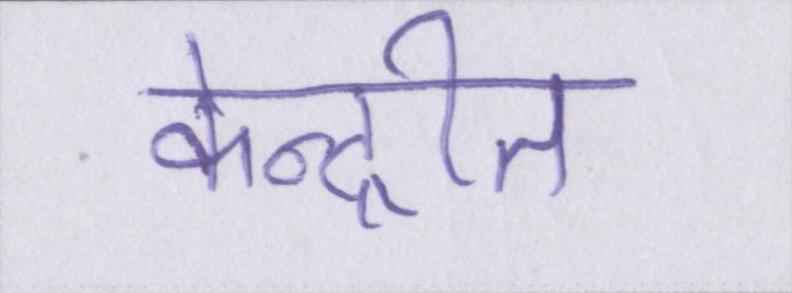 केन्द्रीत